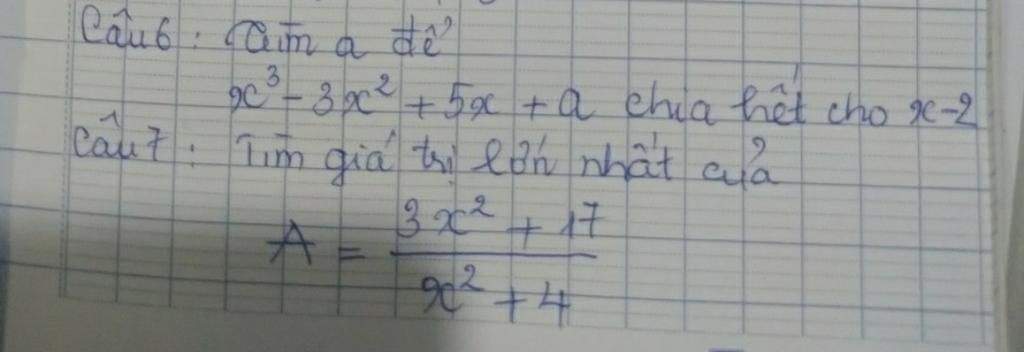 Câu 6 : Tìm a để
x³ - 3x² + 5x + a chia hết cho x-2
Câu 7 : Tìm giá trị lớn nhất của
A = \frac{3x² + 17}{x² + 4}